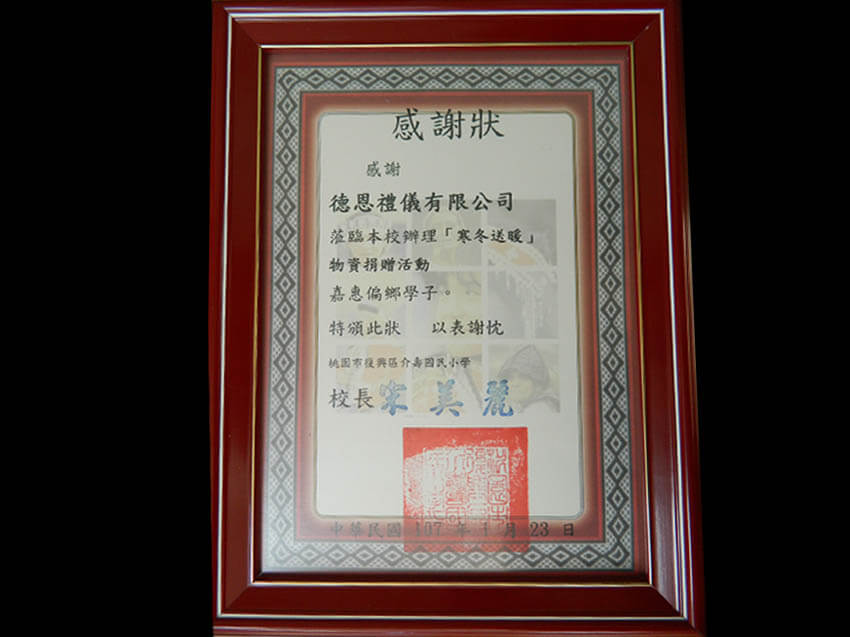 感謝狀
感謝
德恩禮儀有限公司
蒞臨本校辦理「寒冬送暖」
物資捐贈活動
嘉惠偏鄉學子。
特頒此狀 以表謝忱
桃園市復興區介壽國民小學
校長 宋美麗
中華民國 107 年 1 月 23 日